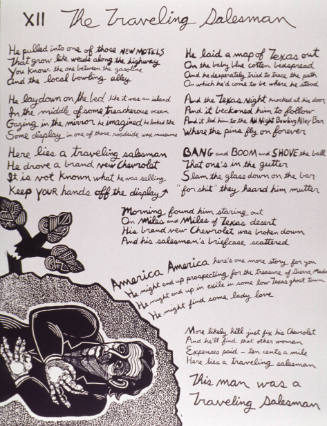 XII The Traveling Salesman
He pulled into one of those NEW MOTELS
That grow like weeds along the highway
You know the one between the gasoline
And the local bowling alley
He lay down on the bed like it was an island
In the middle of some treacherous ocean
Gazing in the mirror he imagined he looked like
Some display in one of those roadside wax museums
Here lies a traveling salesman
He drove a brand new Chevrolet
It is not known what he was selling
KEEP YOUR HANDS off the display
He laid a map of Texas out
On the baby blue cotton bedspread
And he desperately tried to trace the path
On which he'd come to be where he stood
And the Texas Night knocked at his door
And it beckoned him to follow
And it led him to the All Night Bowling Alley Bar
Where the pins fly on forever
BANG and BOOM and SHOVE the ball
That one's in the gutter
Slam the glass down on the bar
"for shit" they heard him mutter
Morning found him staring out
On Miles and Miles of Texas desert
His brand new Chevrolet was broken down
And his salesman's briefcase scattered
America America here's one more story for you
He might end up prospecting for the Treasure of Sierra Madre
He might end up in exile in some low Texas ghost town
He might find some lady love
More likely he'll just fix his Chevrolet
And he'll find that other woman
Expenses paid - ten cents a mile
Here lies a traveling salesman
This man was a
Traveling Salesman